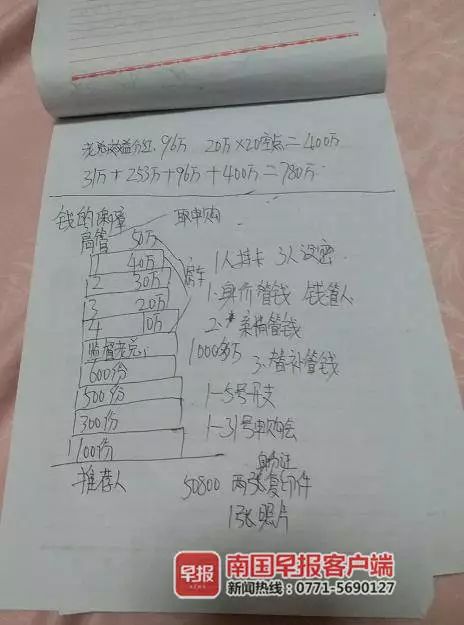 老总效益分红 96万 20万×20空点=400万
31万+253万+96万+400万=780万
钱的保障 取申购
高管 50万
1 40万 1人挂卡 3人设密
2 30万 1.身价管钱 钱管人
3 20万
4 10万 2. 亲情管钱
监督老总 1000多万 3.替补管钱
600份
500份 1-5号开支
300份 1-31号申购会
100份
身份证
推荐人 50800 两张复印件
1张照片
早报 南国早报客户端
新闻热线:0771-5690127